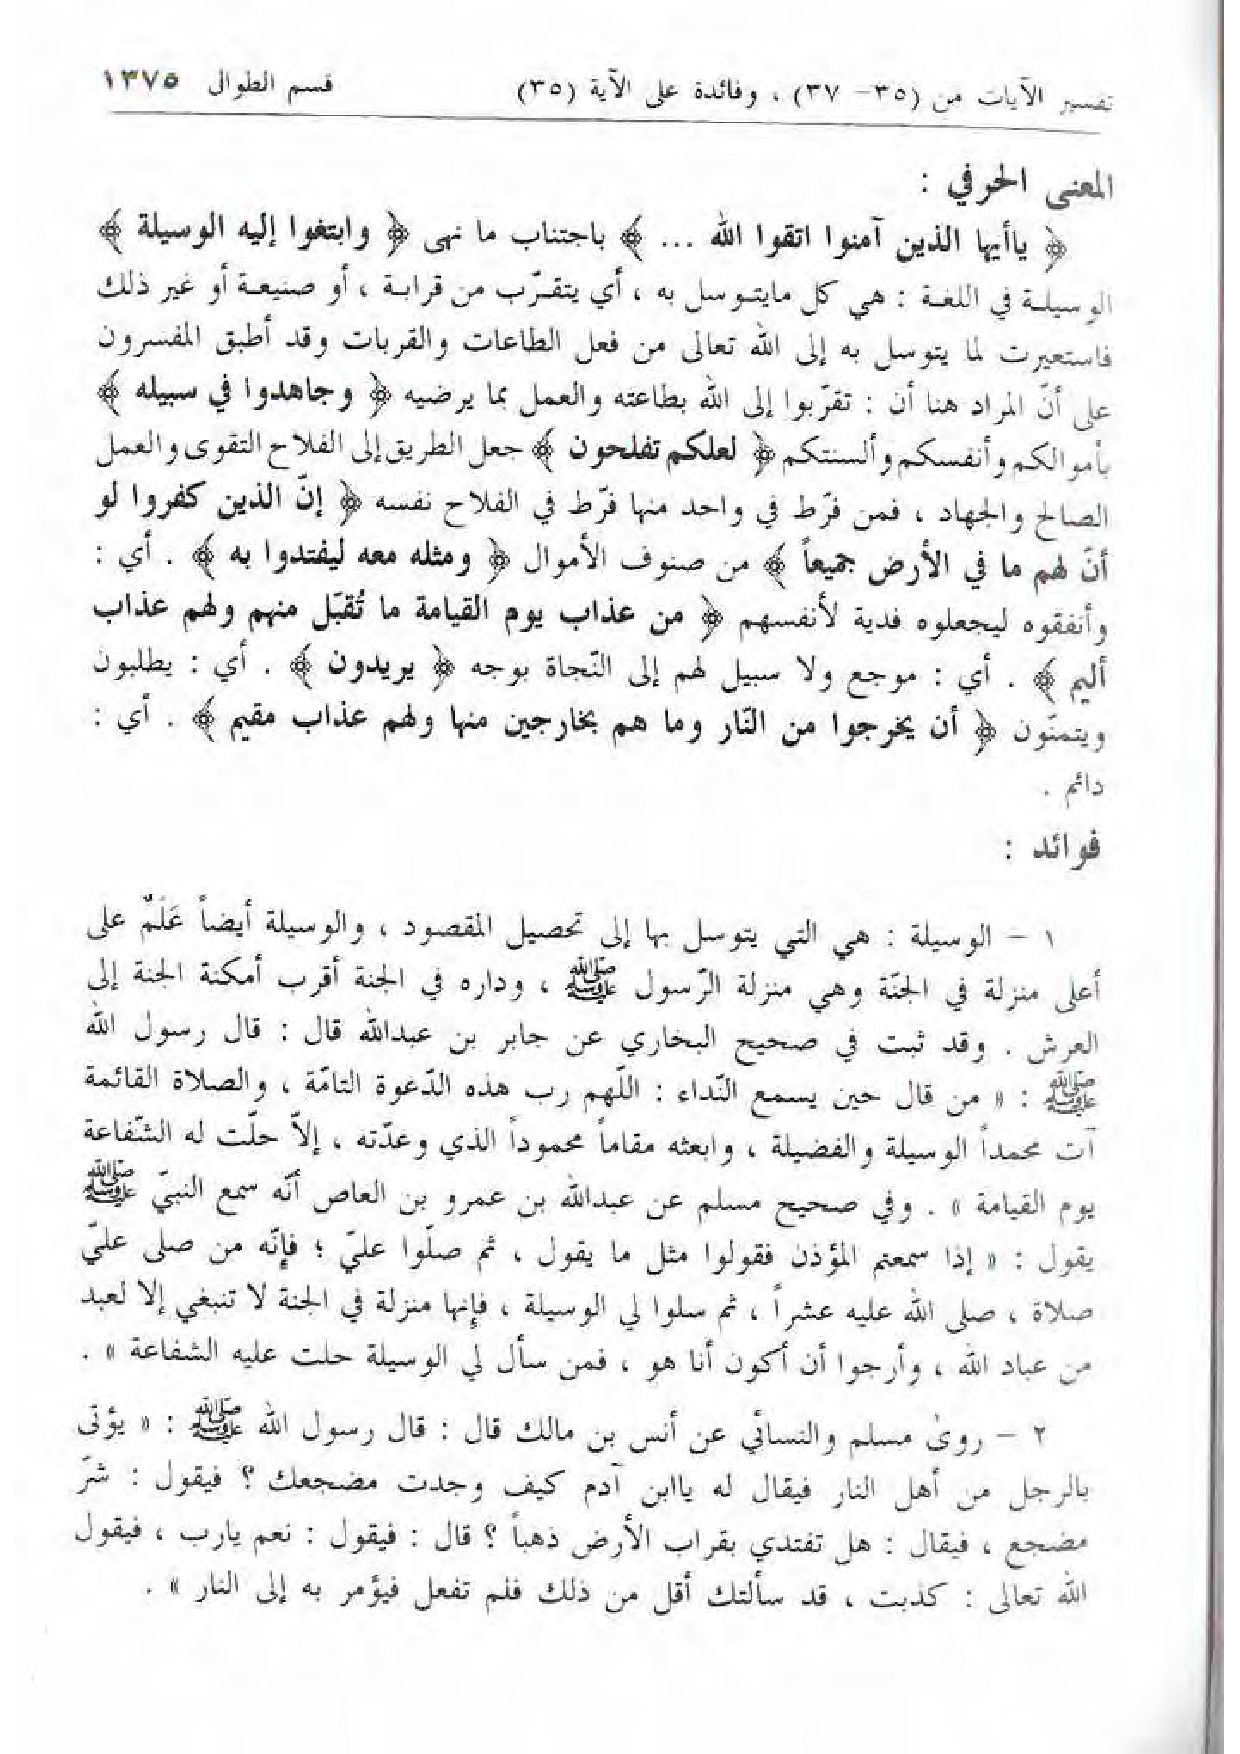 تفسير الآيات من (٣٥- ٣٧) ، وفائدة على الآية (٣٥) قسم الطوال ١٣٧٥
المعنى الحرفي :
﴿ ياأيها الذين آمنوا اتقوا الله ... ﴾ باجتناب ما نهى ﴿ وابتغوا إليه الوسيلة ﴾
الوسيلة في اللغة : هي كل مايتوسل به ، أي يتقرّب من قرابة ، أو صنيعة أو غير ذلك
فاستعيرت لما يتوسل به إلى الله تعالى من فعل الطاعات والقربات وقد أطبق المفسرون
على أنّ المراد هنا أن : تقرّبوا إلى الله بطاعته والعمل بما يرضيه ﴿ وجاهدوا في سبيله ﴾
بأموالكم وأنفسكم وألسنتكم ﴿ لعلكم تفلحون ﴾ جعل الطريق إلى الفلاح التقوى والعمل
الصالح والجهاد ، فمن فرّط في واحد منها فرّط في الفلاح نفسه ﴿ إنّ الذين كفروا لو
أنّ لهم ما في الأرض جميعاً ﴾ من صنوف الأموال ﴿ ومثله معه ليفتدوا به ﴾ . أي :
وأنفقوه ليجعلوه فدية لأنفسهم ﴿ من عذاب يوم القيامة ما تُقبّل منهم ولهم عذاب
أليم ﴾ . أي : موجع ولا سبيل لهم إلى النّجاة بوجه ﴿ يريدون ﴾ . أي : يطلبون
ويتمنّون ﴿ أن يخرجوا من النّار وما هم بخارجين منها ولهم عذاب مقيم ﴾ . أي :
دائم .
فوائد :
١ - الوسيلة : هي التي يتوسل بها إلى تحصيل المقصود ، والوسيلة أيضاً عَلَمٌ على
أعلى منزلة في الجنّة وهي منزلة الرّسول ﷺ ، وداره في الجنة أقرب أمكنة الجنة إلى
العرش . وقد ثبت في صحيح البخاري عن جابر بن عبدالله قال : قال رسول الله
ﷺ : « من قال حين يسمع النّداء : اللّهم رب هذه الدّعوة التامّة ، والصلاة القائمة
آت محمداً الوسيلة والفضيلة ، وابعثه مقاماً محموداً الذي وعدّته ، إلاّ حلّت له الشّفاعة
يوم القيامة » . وفي صحيح مسلم عن عبدالله بن عمرو بن العاص أنّه سمع النبيّ ﷺ
يقول : « إذا سمعتم المؤذن فقولوا مثل ما يقول ، ثم صلّوا عليّ ؛ فإنّه من صلى عليّ
صلاة ، صلى الله عليه عشراً ، ثم سلوا لي الوسيلة ، فإنها منزلة في الجنة لا تنبغي إلا لعبد
من عباد الله ، وأرجوا أن أكون أنا هو ، فمن سأل لي الوسيلة حلت عليه الشفاعة » .
٢ - روىٰ مسلم والنسائي عن أنس بن مالك قال : قال رسول الله ﷺ : « يؤتى
بالرجل من أهل النار فيقال له ياابن آدم كيف وجدت مضجعك ؟ فيقول : شرّ
مضجع ، فيقال : هل تفتدي بقراب الأرض ذهباً ؟ قال : فيقول : نعم يارب ، فيقول
الله تعالى : كذبت ، قد سألتك أقل من ذلك فلم تفعل فيؤمر به إلى النار » .